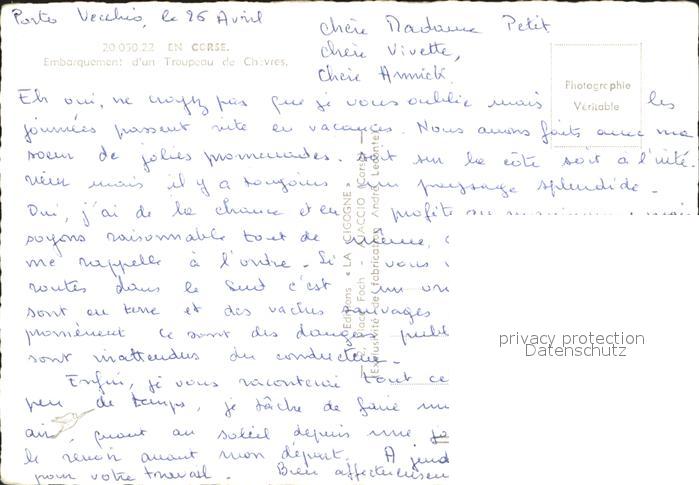 Porto Vecchio, le 26 Avril
20.050.22 EN CORSE.
Embarquement d'un Troupeau de Chèvres,
Chère Madame Petit
Chère Vivette,
Chère Annick.
Photographie
Véritable
Eh oui, ne croyez pas que je vous oublie mais les
journées passent vite en vacances. Nous avons faits avec ma
soeur de jolies promenades. soit sur la côte soit à l'inté-
rieur mais il y a toujours un paysage splendide.
Oui, j'ai de la chance et en profite au maximum, mais
soyons raisonnable tout de même,
me rappelle à l'ordre. Si vous
routes dans le Sud c'est un
sont en terre et des vaches sauvages
promènent ce sont des dangers publ
sont inattendus du conducteur.
Enfin, je vous raconterai tout ce
peu de temps, je tâche de faire
quant au soleil depuis une
le revoir avant mon départ. A
pour votre travail. Bien affectueusem
Editions « LA CIGOGNE »
Place Foch - AJACCIO (Corse)
Exclusivité de fabrication André Leconte
privacy protection
Datenschutz